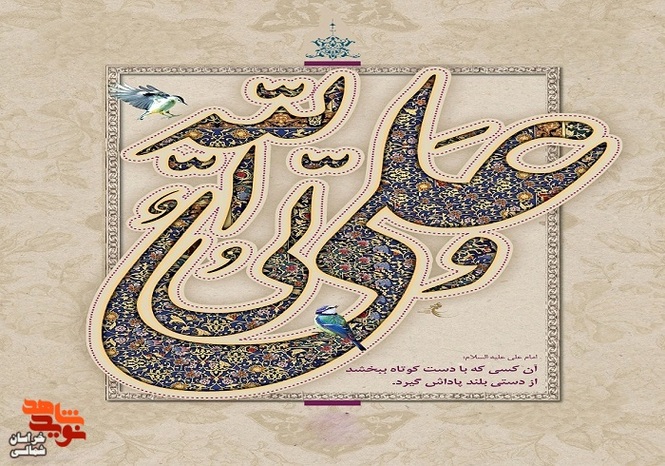 علی ولی الله
امام علی علیه السلام:
آن کسی که با دست کوتاه ببخشد
از دستی بلند پاداش گیرد.
نوید شاهد
خراسان شمالی